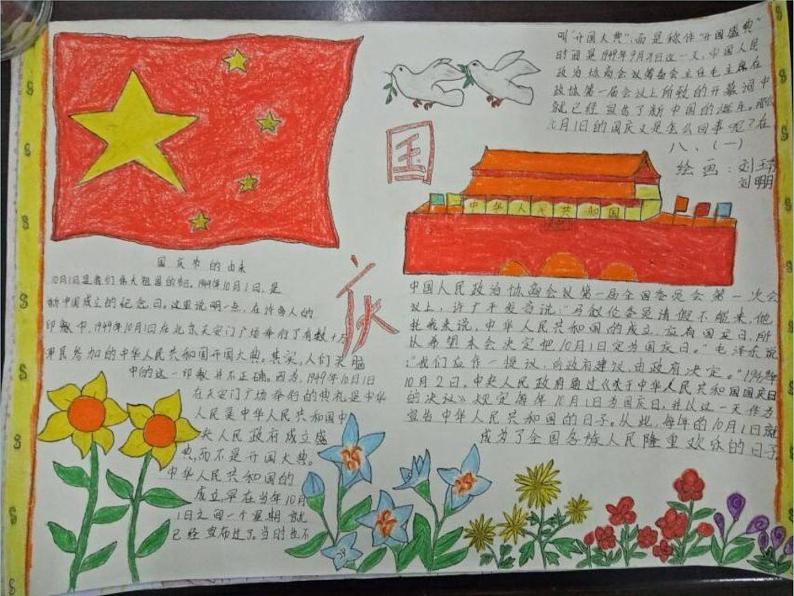 国
庆
国庆节的由来
10月1日是我们伟大祖国的生日。1949年10月1日，是
新中国成立的纪念日。这里说明一点，在许多人的
印象中，1949年10月1日在北京天安门广场举行了有数十万
军民参加的中华人民共和国开国大典。其实，人们头脑
中的这一印象并不正确。因为，1949年10月1日
在天安门广场举行的典礼是中华
人民是中华人民共和国中
央人民政府成立盛
典，而不是开国大典。
中华人民共和国的
成立早在当年10月
1日之前一个星期就
已经宣布过了。当时也不
叫"开国大典"，而是称作"开国盛典"
时间是1949年9月21日这一天，中国人民
政治协商会议筹备会主任毛主席在
政协第一届会议上所致的开幕词中
就已经宣告了新中国的诞生。那么
10月1日的国庆又是怎么回事呢？在
八、（一）
绘画：刘玉
刘明明
中华人民共和国
中国人民政治协商会议第一届全国委员会第一次会
议上，许广平发言说："马叙伦委员请假不能来，他
托我来说，中华人民共和国的成立，应有国庆日，所
以希望本会决定把10月1日定为国庆日。"毛泽东说
"我们应作一提议，向政府建议，由政府决定。"1949年
10月2日，中央人民政府通过《关于中华人民共和国国庆日
的决议》规定每年10月1日为国庆日，并以这一天作为
宣告中华人民共和国的日子。从此，每年的10月1日就
成为了全国各族人民隆重欢乐的日子